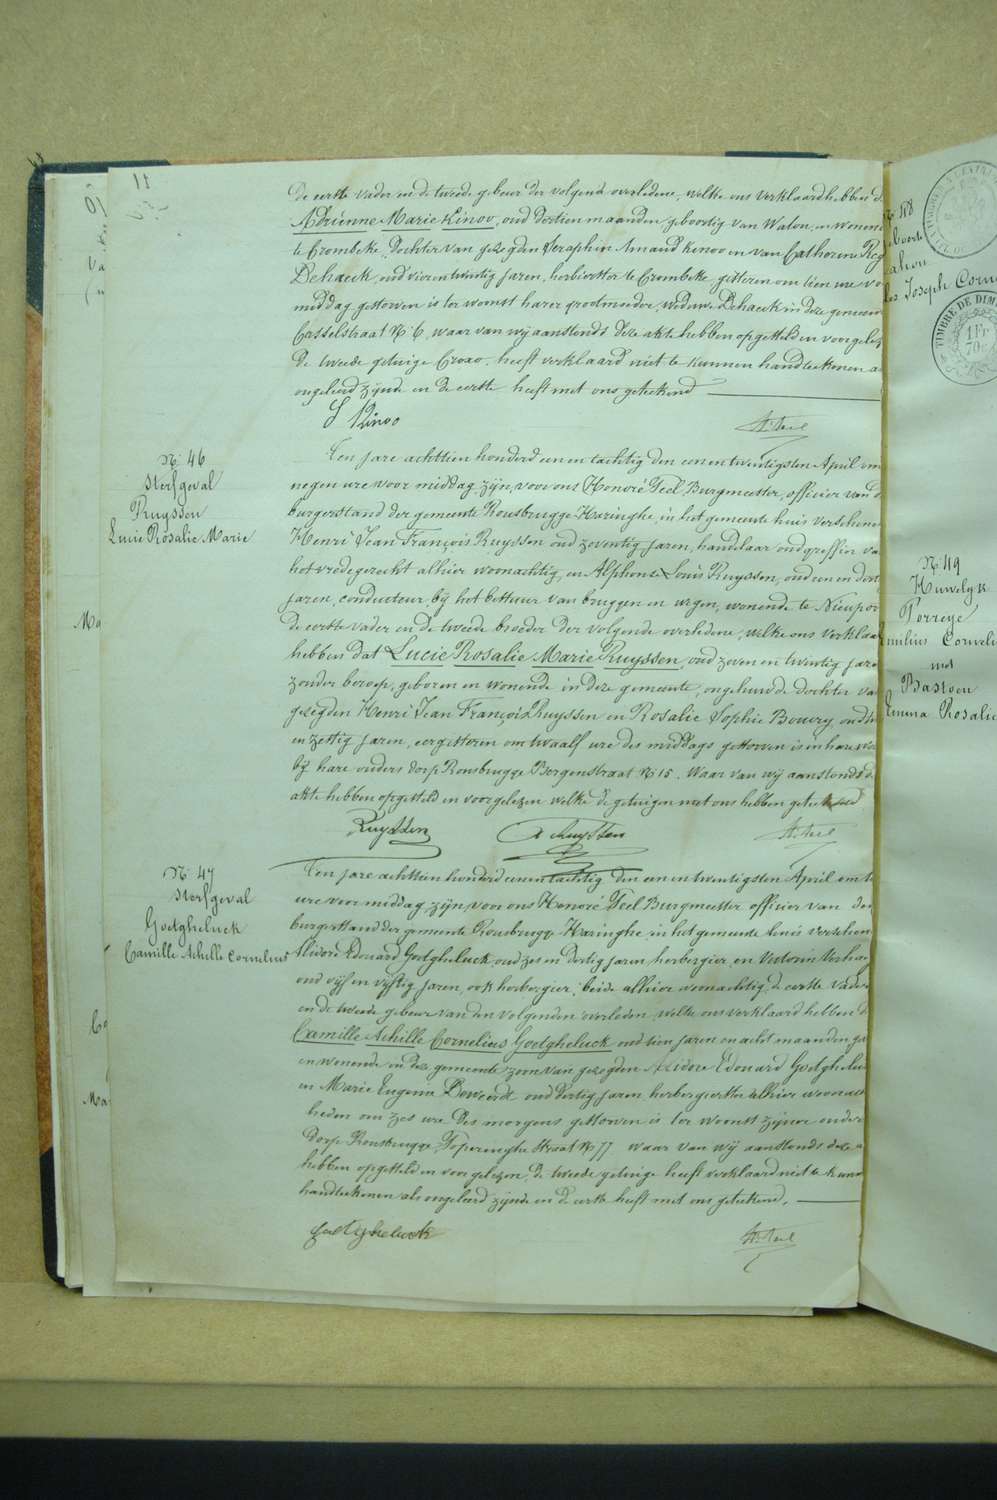 De eerste vader en de tweede gebeur der volgende overledene, welke ons verklaard hebben d
Adrienne Marie Kinoo, oud dertien maanden geboortig van Watou, en wonend
te Crombeke, dochter van gezegden Seraphin Amand Kinoo en van Catherene Reg
Dehaeck, oud vierentwintig jaren, herbierster te Crombeke, gisteren om tien ure vo
middag gestorven is ter woonst harer grootmoeder, weduwe Dehaeck in deze gemeen
Casselstraat No 6, waar van wij aanstonds deze akte hebben opgesteld en voorgelez
De tweede getuige heeft verklaard niet te kunnen handteekenen a
ongeleerd zijnde en de eerste heeft met ons geteekend
S Kinoo
H. Feil
No 46
Sterfgeval
Ruyssen
Lucie Rosalie Marie
Ten jare achttien honderd een en tachtig den een en twentigsten April om
negen ure voor middag zijn, voor ons Honoré Feil, Burgmeester, officier van d
burgerstand der gemeente Rousbrugge Haringhe, in het gemeente huis verschenen
Henri Jean François Ruyssen oud zeventig jaren, handelaar oud greffier va
het vredegerecht alhier woonachtig, en Alphonse Louis Ruyssen, oud een en dert
jaren, conducteur bij het bestuur van bruggen en wegen, wonende te Nieupor
de eerste vader en de tweede broeder der volgende overledene, welke ons verklaa
hebben dat Lucie Rosalie Marie Ruyssen, oud zeven en twintig jare
zonder beroep, geboren en wonende in deze gemeente, ongehuwde dochter va
gezegden Henri Jean François Ruyssen en Rosalie Sophie Bouvry oud
en zestig jaren, eergisteren om twaalf ure des middags gestorven is in hare wo
bij hare ouders dorp Rousbrugge Bergenstraat No 15. Waar van wij aanstonds d
akte hebben opgesteld en voorgelezen welke de getuigen met ons hebben geteekend
Ruyssen
A Ruyssen
H. Feil
No 47
Sterfgeval
Goetgheluck
Camille Achille Cornelius
Ten jare achttien honderd een en tachtig, den een en twentigsten April om t
ure voor middag zijn, voor ons Honoré Feil Burgmeester officier van den
burgerstand der gemeente Rousbrugge Haringhe, in het gemeente huis verschen
Alidore Edouard Goetgheluck, oud zes en dertig jaren herbergier, en Victorin Verhae
oud vijf en vijftig jaren, ook herbergier, beide alhier woonachtig, de eerste vader
en de tweede gebeur van den volgenden overleden, welke ons verklaard hebben d
Camille Achille Cornelius Goetgheluck oud tien jaren en acht maanden ge
en wonende in deze gemeente zoon van gezegden Alidore Edouard Goetghelu
en Marie Eugenie oud dertig jaren herbergierster alhier woonach
heden om zes ure des morgens gestorven is ter woonst zijner ouder
Dorp Rousbrugge, Poperinghe Straat No 77. waar van wij aanstonds deze a
hebben opgesteld en voorgelezen, de tweede getuige heeft verklaard niet te kunn
handteekenen als ongeleerd zijnde en de eerste heeft met ons geteekend.
Goetgheluck
H. Feil
11
Ma
Ma
No 48
Geboorte
Cahou
Joseph Corne
TIMBRE DE DIM
1 Fr
70c
No 49
Huwelijk
Porreye
Emilius Corneli
met
Bastoen
Emma Rosalie